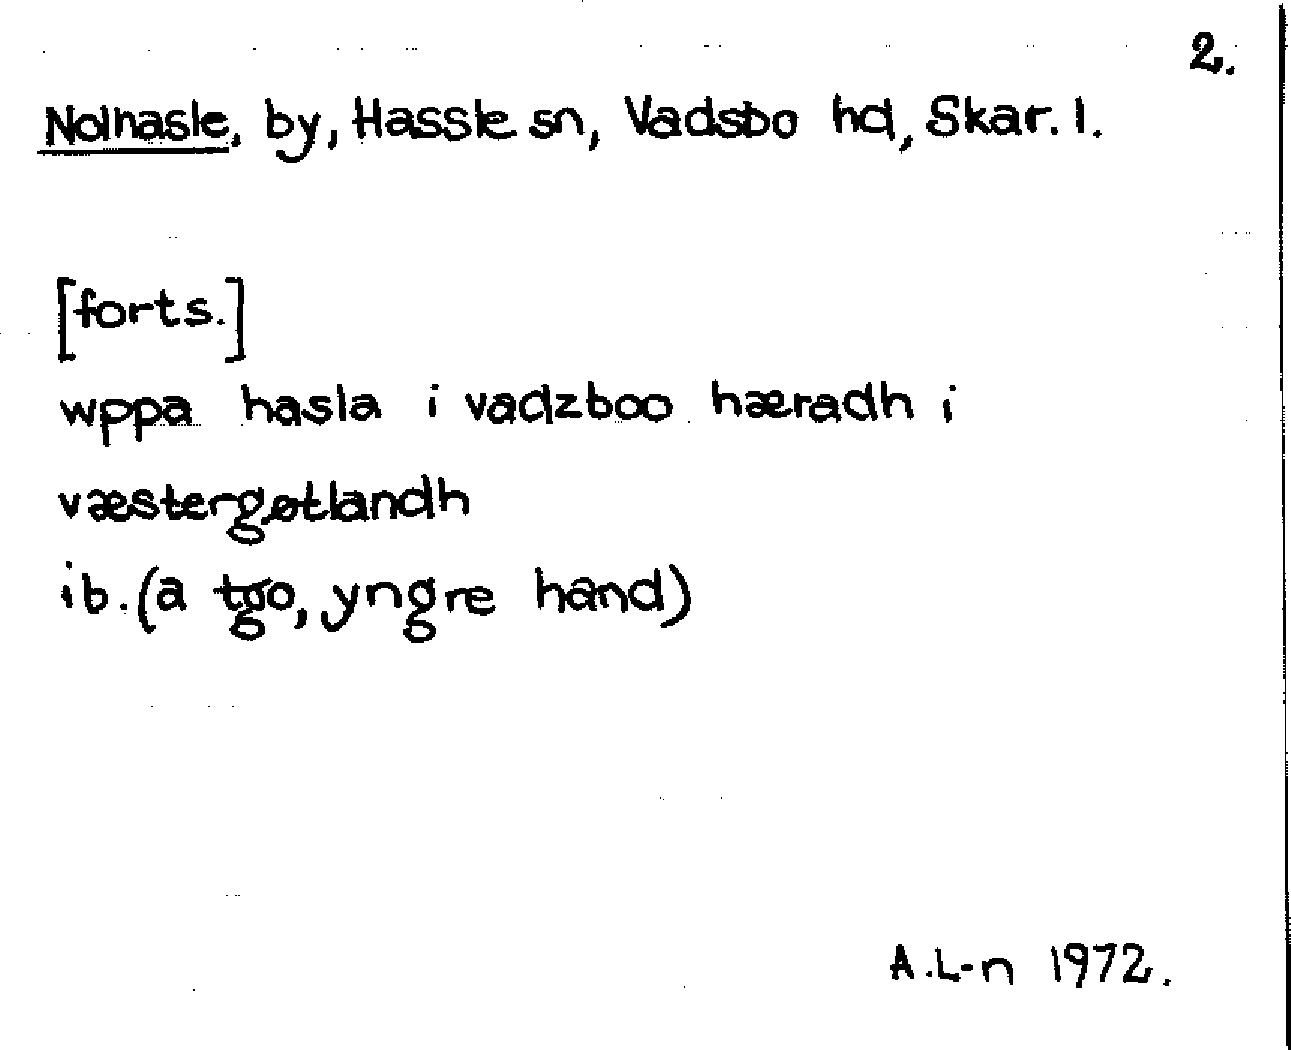 2.
Nolhasle, by, Hassle sn, Vadsbo hd, Skar. l.
[forts.]
wppa hasla i vadzboo hæradh i
væstergøtlandh
ib. (a tgo, yngre hand)
A.L-n 1972.